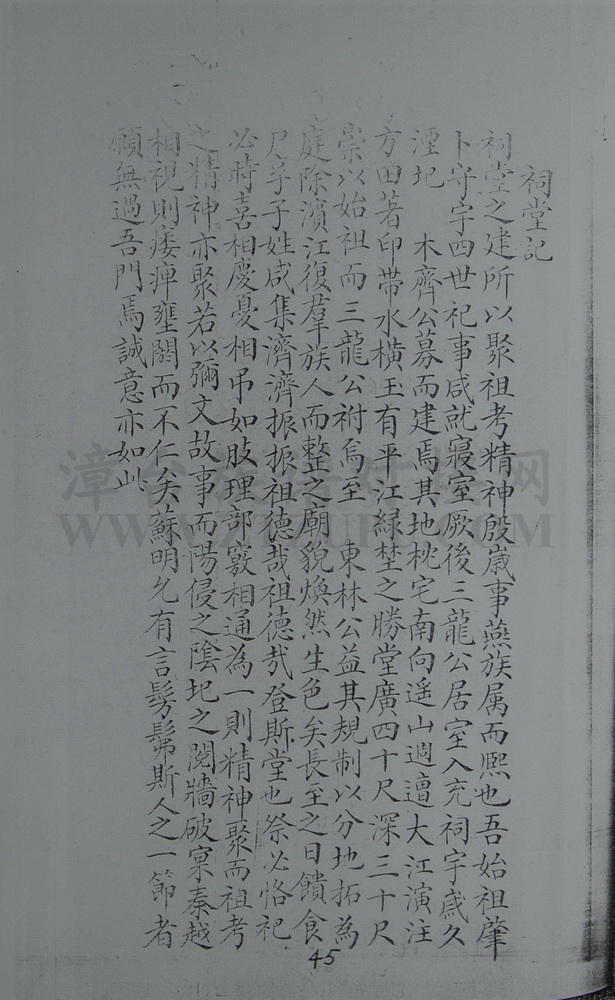 祠堂記
祠堂之建所以聚祖考精神殷歲事燕族属而熙也吾始祖肇
卜守宇四世祀事咸就寢室厥後三龍公居室入充祠宇歲久
湮圮 木齊公募而建焉其地枕宅南向遥山週遭大江演汪
方田著印帶水橫玉有平江緑埜之勝堂廣四十尺深三十尺
崇以始祖而三龍公祔焉至 東林公益其規制以分地拓為
庭除濱江復羣族人而整之廟貌煥然生色矣長至之日饋食
尸孚子姓咸集濟濟振振祖德哉祖德哉登斯堂也祭必恪祀
必時喜相慶憂相弔如肢理部竅相通為一則精神聚而祖考
之精神亦聚若以彌文故事而陽侵之陰圮之鬩牆破寠秦越
相視則痿痺壅閼而不仁矣蘇明允有言髣髴斯人之一節者
願無過吾門焉誠意亦如此
45
漳台族譜对接网